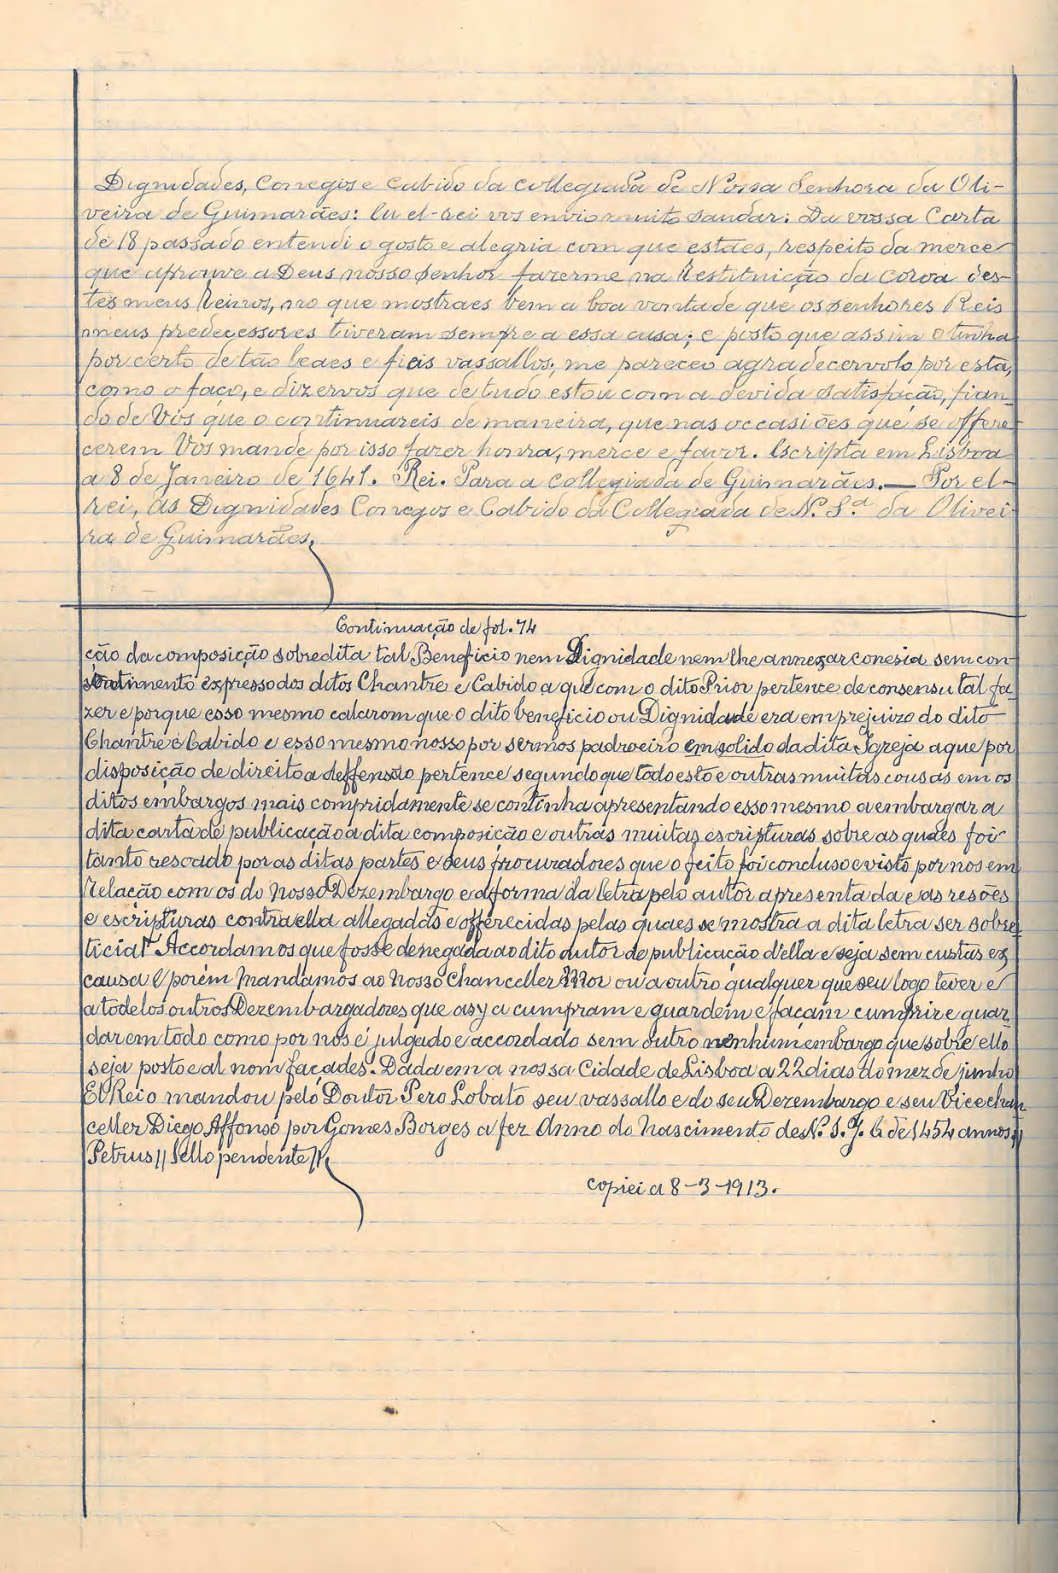 Dignidades, Conegos e Cabido da collegiada de Nossa Senhora da Oli-
veira de Guimarães: Eu el-rei vos envio muito saudar: Da vossa Carta
de 18 passado entendi o gosto e alegria com que estaes, respeito da merce
que aprouve a Deus nosso Senhor fazerme na Restituição da coroa des-
tes meus Reinos, no que mostraes bem a boa vontade que os senhores Reis
meus predecessores tiveram sempre a essa casa; e posto que assim o tinha
por certo de tão leaes e fieis vassallos, me pareceo agradecervolo por esta,
como o faço, e dizervos que de tudo estou com a devida satisfação, fian-
do de Vós que o continuareis de maneira, que nas occasiões que se offere
cerem Vos mande por isso fazer honra, merce e favor. Escripta em Lisboa
a 8 de Janeiro de 1641. Rei. Para a collegiada de Guimarães. — Por el-
rei, Ás Dignidades Conegos e Cabido da Collegiada de N. S.ª da Olivei
ra de Guimarães.
Continuação de fol. 74
ção da composição sobredita tal Beneficio nem Dignidade nem lhe annexar conesia sem con-
sentimento expresso dos ditos Chantre e Cabido a que com o dito Prior pertence de consensu tal fa-
zer e porque esso mesmo calarom que o dito beneficio ou Dignidade era em prejuizo do dito
Chantre e Cabido e esso mesmo nosso por sermos padroeiro em solido da dita Igreja a que por
disposição de direito a deffensão pertence segundo que todo esto e outras muitas cousas em os
ditos embargos mais compridamente se continha apresentando esso mesmo a embargar a
dita carta de publicação a dita composição e outras muitas escripturas sobre as quaes foi
tanto resoado por as ditas partes e seus procuradores que o feito foi concluso e visto por nos em
Relação com os do Nosso Dezembargo e a forma da letra pelo autor apresentada e as resões
e escripturas contra ella allegadas e offerecidas pelas quaes se mostra a dita letra ser sobre
ticia Accordamos que fosse denegada ao dito autor de publicação d'ella e seja sem custas ex
causa E porém Mandamos ao Nosso Chanceller Mor ou a outro qualquer que seu logo tever e
a todelos outros Dezembargadores que asy a cumpram e guardem e façam cumprir e guar
dar em todo como por nos é julgado e accordado sem outro nenhum embargo que sobre ello
seja posto e al nom façades. Dada em a nossa Cidade de Lisboa a 22 dias do mez de junho
El Rei o mandou pelo Doutor Pero Lobato seu vassallo e do seu Dezembargo e seu Vicechan
celler Diego Affonso por Gomes Borges a fez Anno do Nascimento de N. S. J. C. de 1454 annos//
Petrus // Sello pendente //
copiei a 8-3-1913.